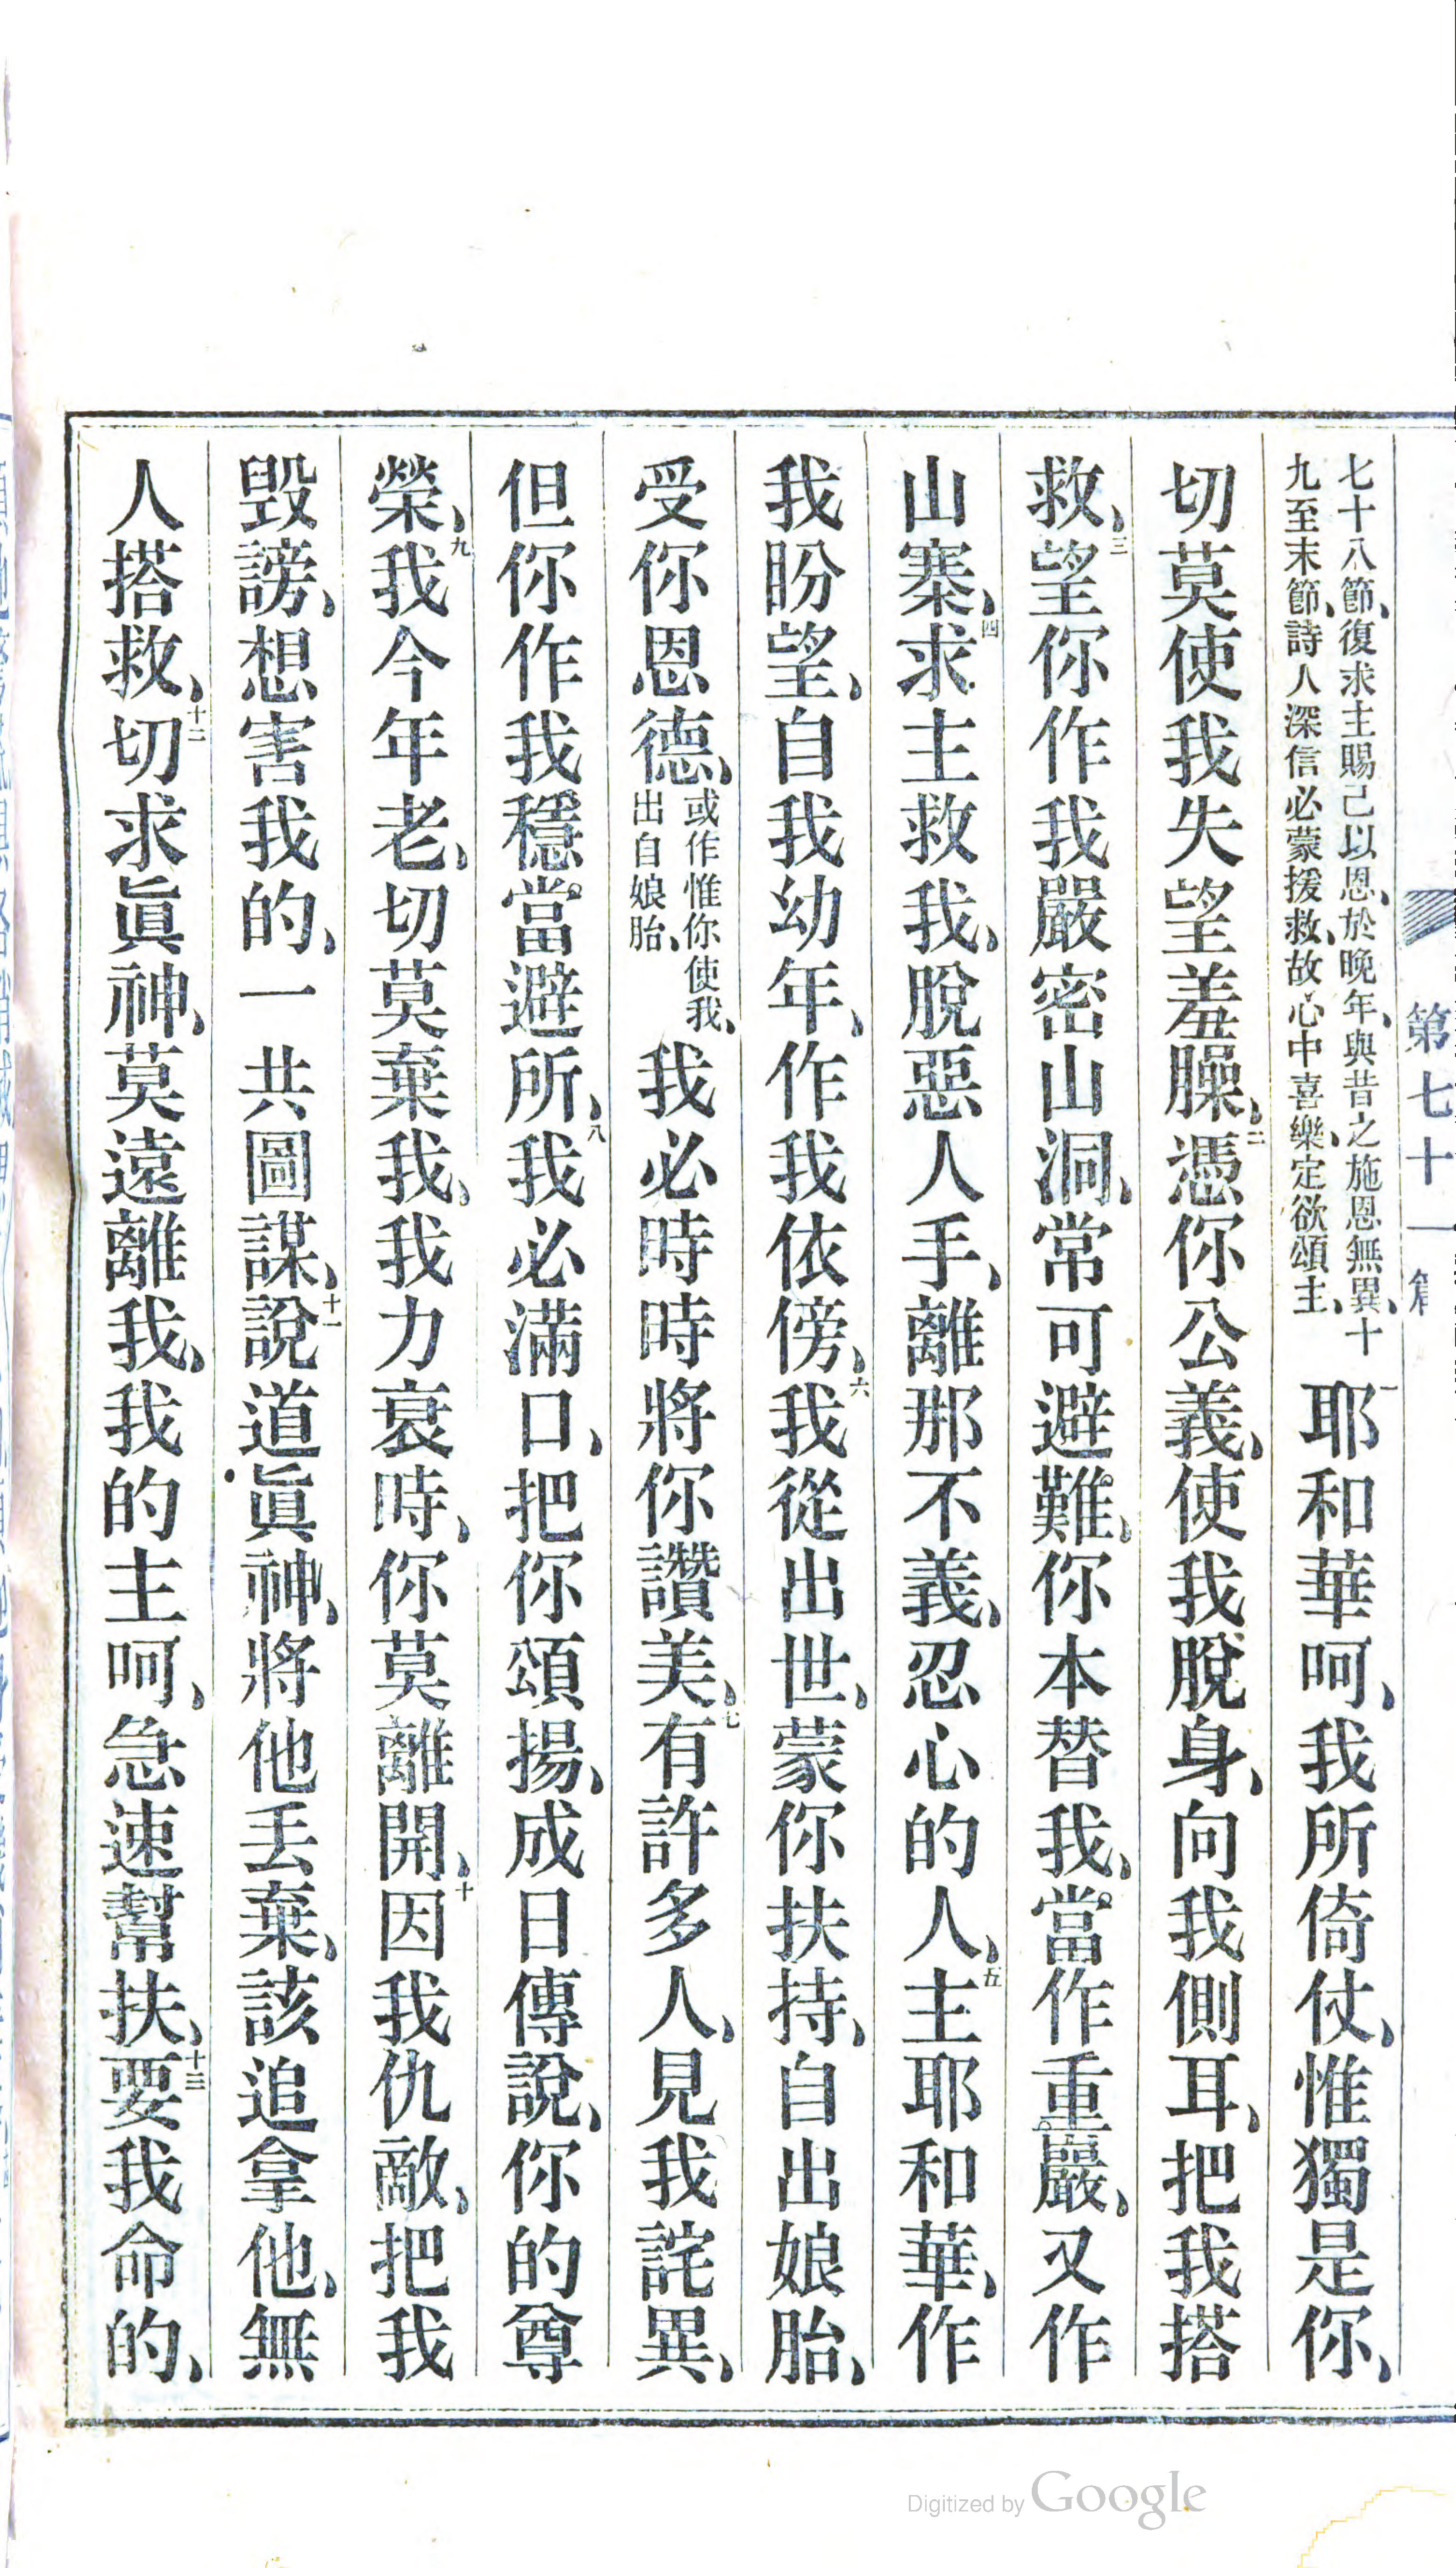 第七十一篇
七十八節、復求主賜己以恩、於晚年、與昔之施恩無異、十
九至末節、詩人深信必蒙援救、故心中喜樂、定欲頌主、
一耶和華呵、我所倚仗、惟獨是你、
切莫使我失望羞臊、二憑你公義、使我脫身、向我側耳、把我搭
救、三望你作我嚴密山洞、常可避難、你本替我、當作重巖、又作
山寨、四求主救我、脫惡人手、離那不義、忍心的人、五主耶和華、作
我盼望、自我幼年、作我依傍、六我從出世、蒙你扶持、自出娘胎、
受你恩德、或作惟你使我、出自娘胎、我必時時將你讚美、七有許多人、見我詫異、
但你作我穩當避所、八我必滿口、把你頌揚、成日傳說、你的尊
榮、九我今年老、切莫棄我、我力衰時、你莫離開、十因我仇敵、把我
毀謗、想害我的、一共圖謀、十一說道眞神、將他丢棄、該追拿他、無
人搭救、十二切求眞神、莫遠離我、我的主呵、急速幫扶、十三要我命的、
Digitized by Google